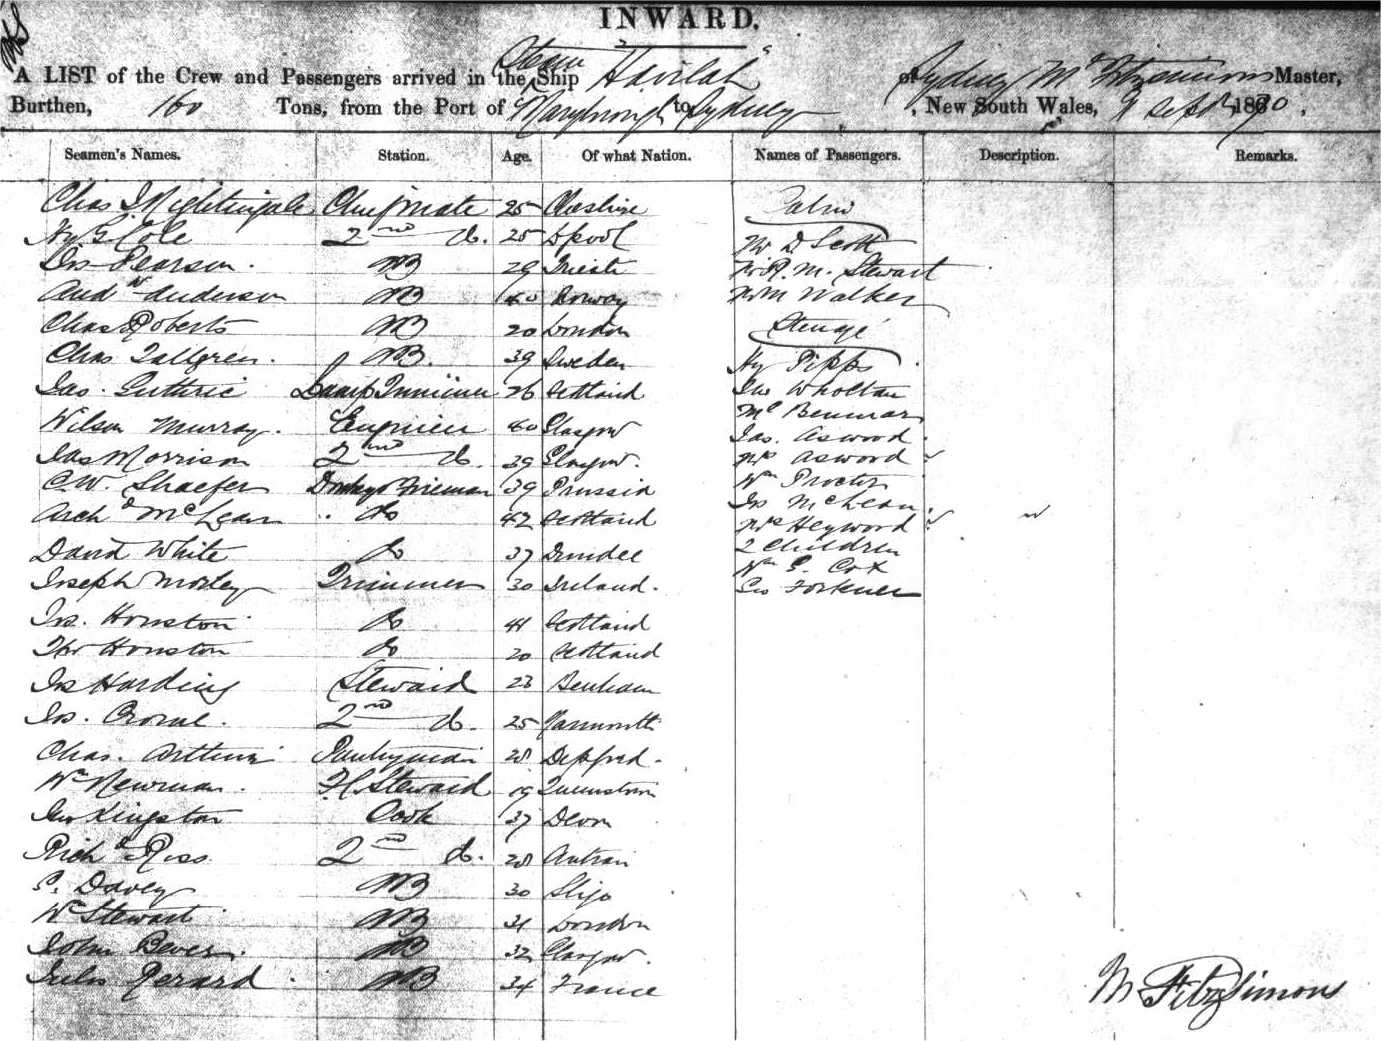 INWARD.
A LIST of the Crew and Passengers arrived in the Steam Ship "Havilah" of Sydney M. Fitzsimons Master,
Burthen, 160 Tons, from the Port of Maryborough to Sydney, New South Wales, 9 Sept 1870,
Seamen's Names. Station. Age. Of what Nation. Names of Passengers. Description. Remarks.
Chas J Nightingale Chief mate 25 Cheshire Cabin
Hy G. Cole 2nd do. 25 Lpool Mr D Scott
Jos Pearson. AB 29 Trieste Mr R. M. Stewart
Andw Anderson AB 40 Norway Walker
Chas Roberts AB 20 London Steerage
Chas Tallgren. AB. 39 Sweden Hy Pipps
Jas. Guthrie Lamp Trimmer 26 Scotland Jno Wholtan
Wilson Murray. Engineer 40 Glasgow
Jas Morrison 2nd do. 39 Glasgow. Jas. Aswood
Mrs Aswood
C.W. Shaefer Donkey Fireman 39 Prussia Wm Proctor
Archd McLean do 42 Scotland Jos McLean.
Mrs Heyword
David White do 37 Dundee 2 children
Joseph Morley Trimmer 30 Ireland. Wm G. Cox
Geo Forkner
Jos. Houston do 41 Scotland
Thos Houston do 20 Scotland
Jos Harding Steward 23 Benham
Jos. Crome. 2nd do. 25 Yarmouth
Chas. Arthur Pantryman 28 Deptford.
Wm Newman. F.C. Steward 19 Queenstown
Jno Kingston Cook 37 Devon
Richd Ross 2nd do. 28 Antrim
P. Davey AB 30 Sligo
Wm Stewart AB 31 London
John Bever. AB 32 Glasgow.
Jules Rerard AB 34 France
M FitzSimons